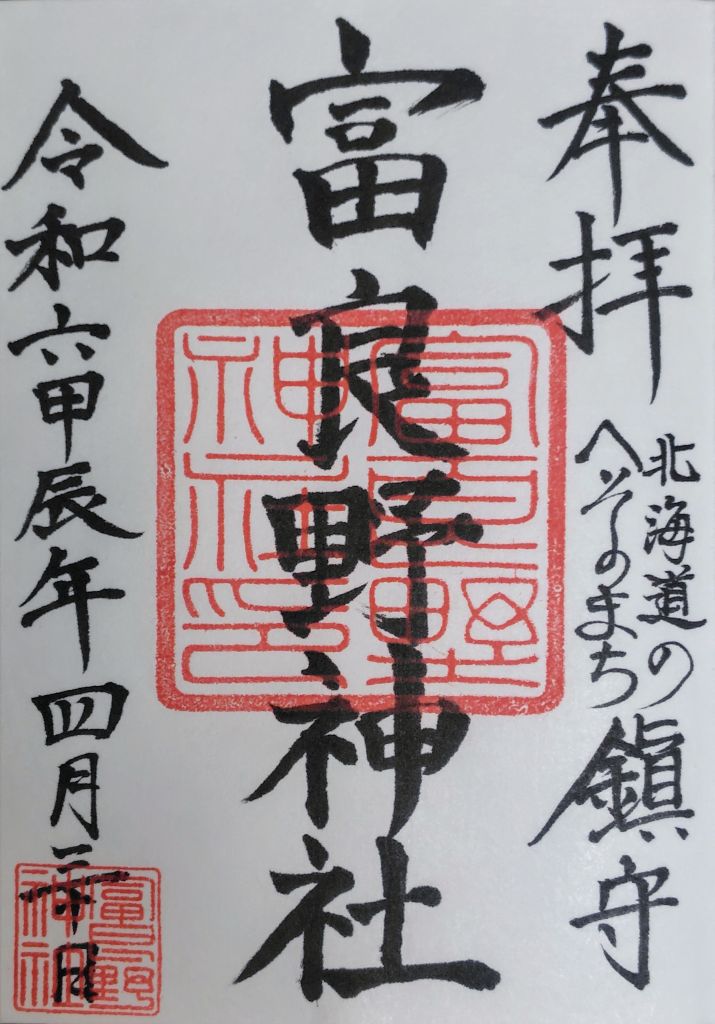 奉拝
北海道の
へそのまち
鎭守
富良野神社
令和六甲辰年四月
富良野
神社印
富良野
神社